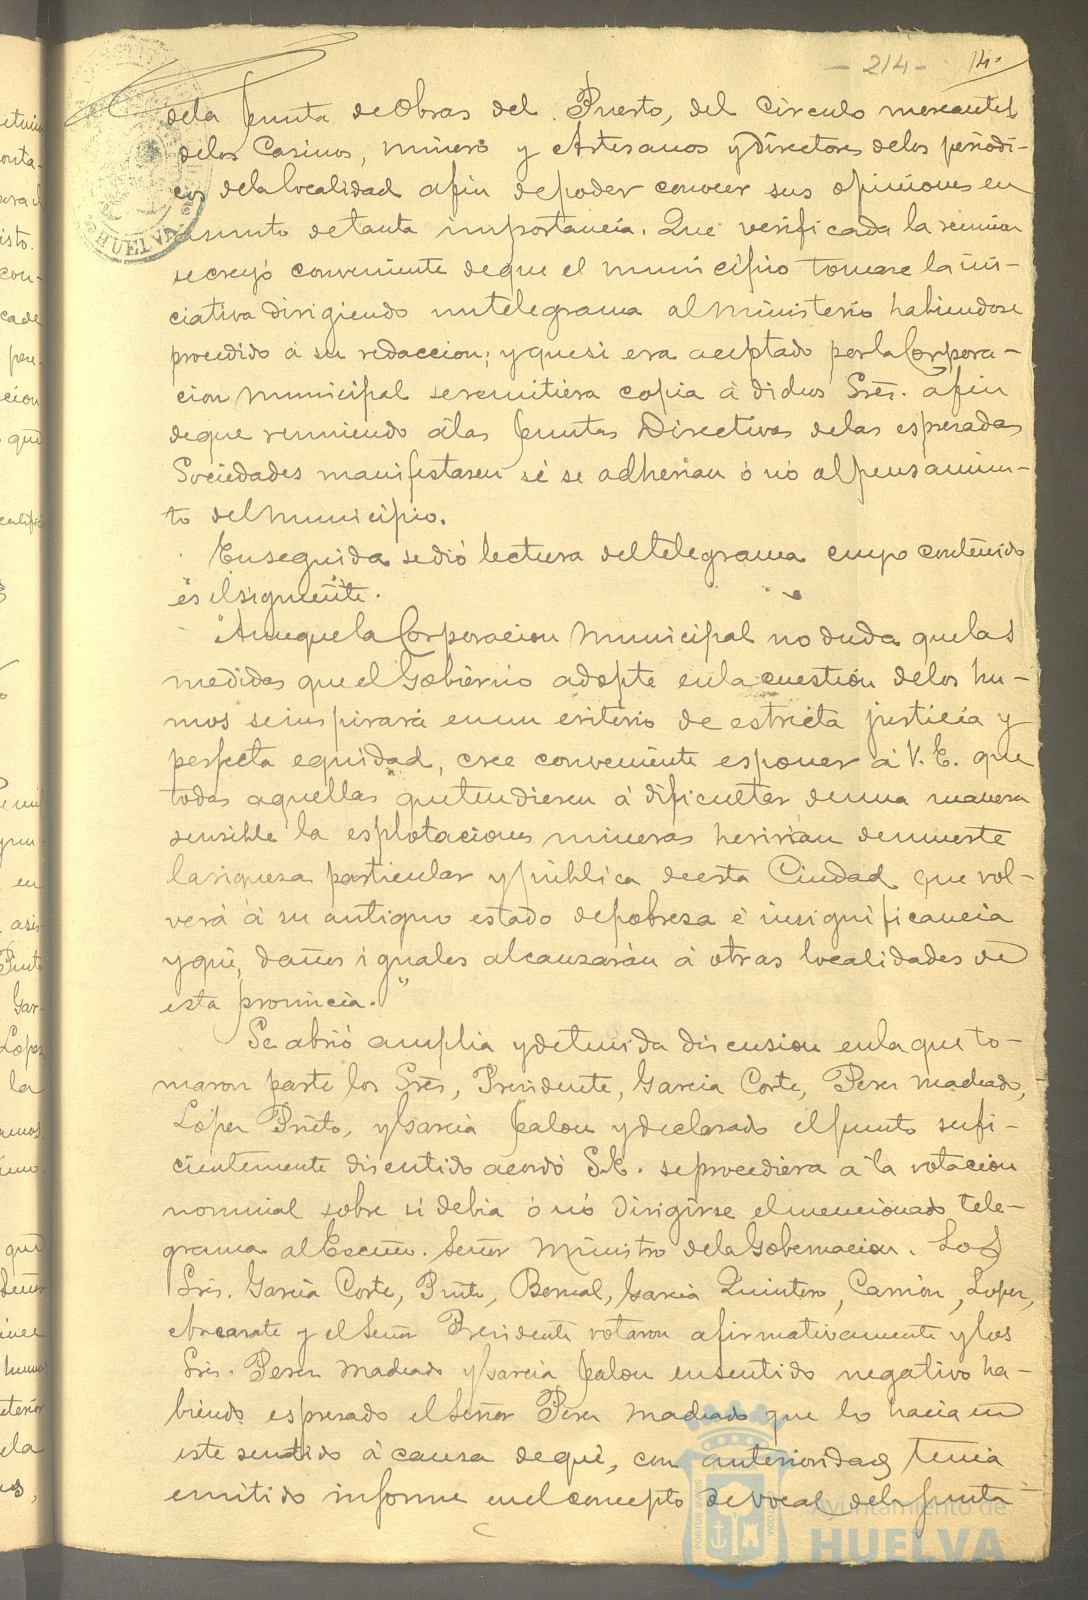 - 214 - 14
dela Junta de Obras del Puerto, del Circulo mercantil
delos Casinos, minero y Artesanos y Directores delos periodi-
cos dela localidad afin depoder conocer sus opiniones en
asunto detanta importancia. Que verificada la reunion
secreyó conveniente deque el municipio tomase la ini-
ciativa dirigiendo untelegrama al Ministerio habiendose
procedido á su redaccion; yquesi era aceptado porla Corpora-
cion Municipal seremitiera copia á dichos Sres. afin
deque reuniendo álas Juntas Directivas delas espresadas
Sociedades manifestasen si se adherian ó nó alpensamien-
to delmunicipio.
Enseguida sedió lectura deltelegrama cuyo contenido
es elsiguiente.
"Aunquela Corporacion Municipal no duda quelas
medidas queel Gobierno adopte enla cuestión delos hu-
mos seinspirará enun criterio de estricta justicia y
perfecta equidad, cree conveniente esponer á V. E. que
todas aquellas quetendiesen á dificultar deuna manera
sensible la esplotaciones mineras heririan demuerte
lariqueza particular y pública deesta Ciudad que vol-
verá á su antiguo estado depobreza é insignificancia
yque, daños iguales alcanzarán á otras localidades de
esta provincia."
Se abrió amplia ydetenida discusion enlaque to-
maron parte los Sres, Presidente, Garcia Corte, Perez Machado,
Lópes Prieto, y Garcia Jalon ydeclarado elpunto sufi-
cientemente discutido acordó S.E. seprocediera a la votacion
nominal sobre si debia ó nó dirigirse elmencionado tele-
grama alEscmo. Señor Ministro dela Gobernacion. Los
Sres. Garcia Corte, Prieto, Bernal, Garcia Quintero, Carrion, Lopez,
Azcarate y el Señor Presidente votaron afirmativamente ylos
Sres. Perez Machado y Garcia Jalon ensentido negativo ha-
biendo espresado elSeñor Perez Machado que lo hacia en
este sentido á causa deque, con anterioridad, tenia
emitido informe enelconcepto deVocal dela Junta
HUELVA
PORTUS MARIS
CUSTODIA
Ayuntamiento de
HUELVA